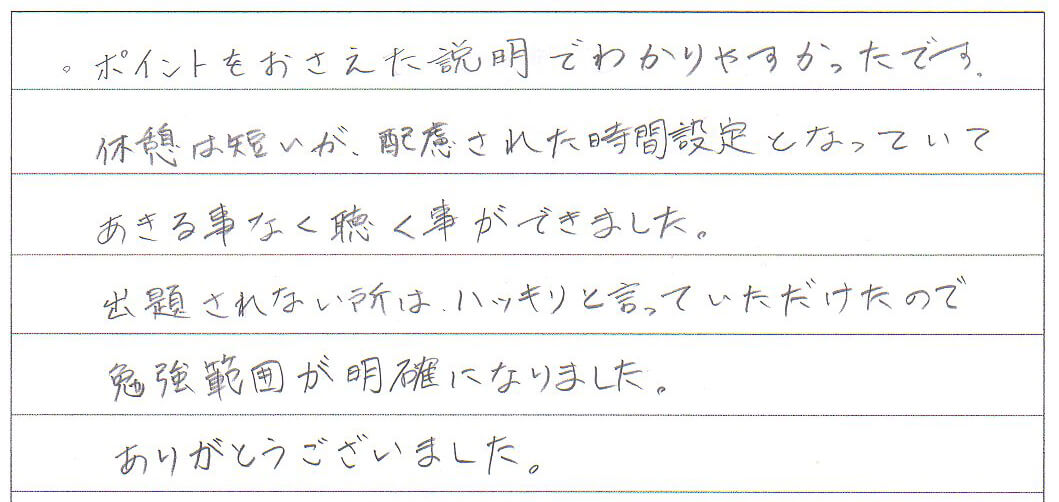 。ポイントをおさえた説明でわかりやすかったです.
休憩は短いが、配慮された時間設定となっていて
あきる事なく聴く事ができました。
出題されない所は、ハッキリと言っていただけたので
勉強範囲が明確になりました。
ありがとうございました。